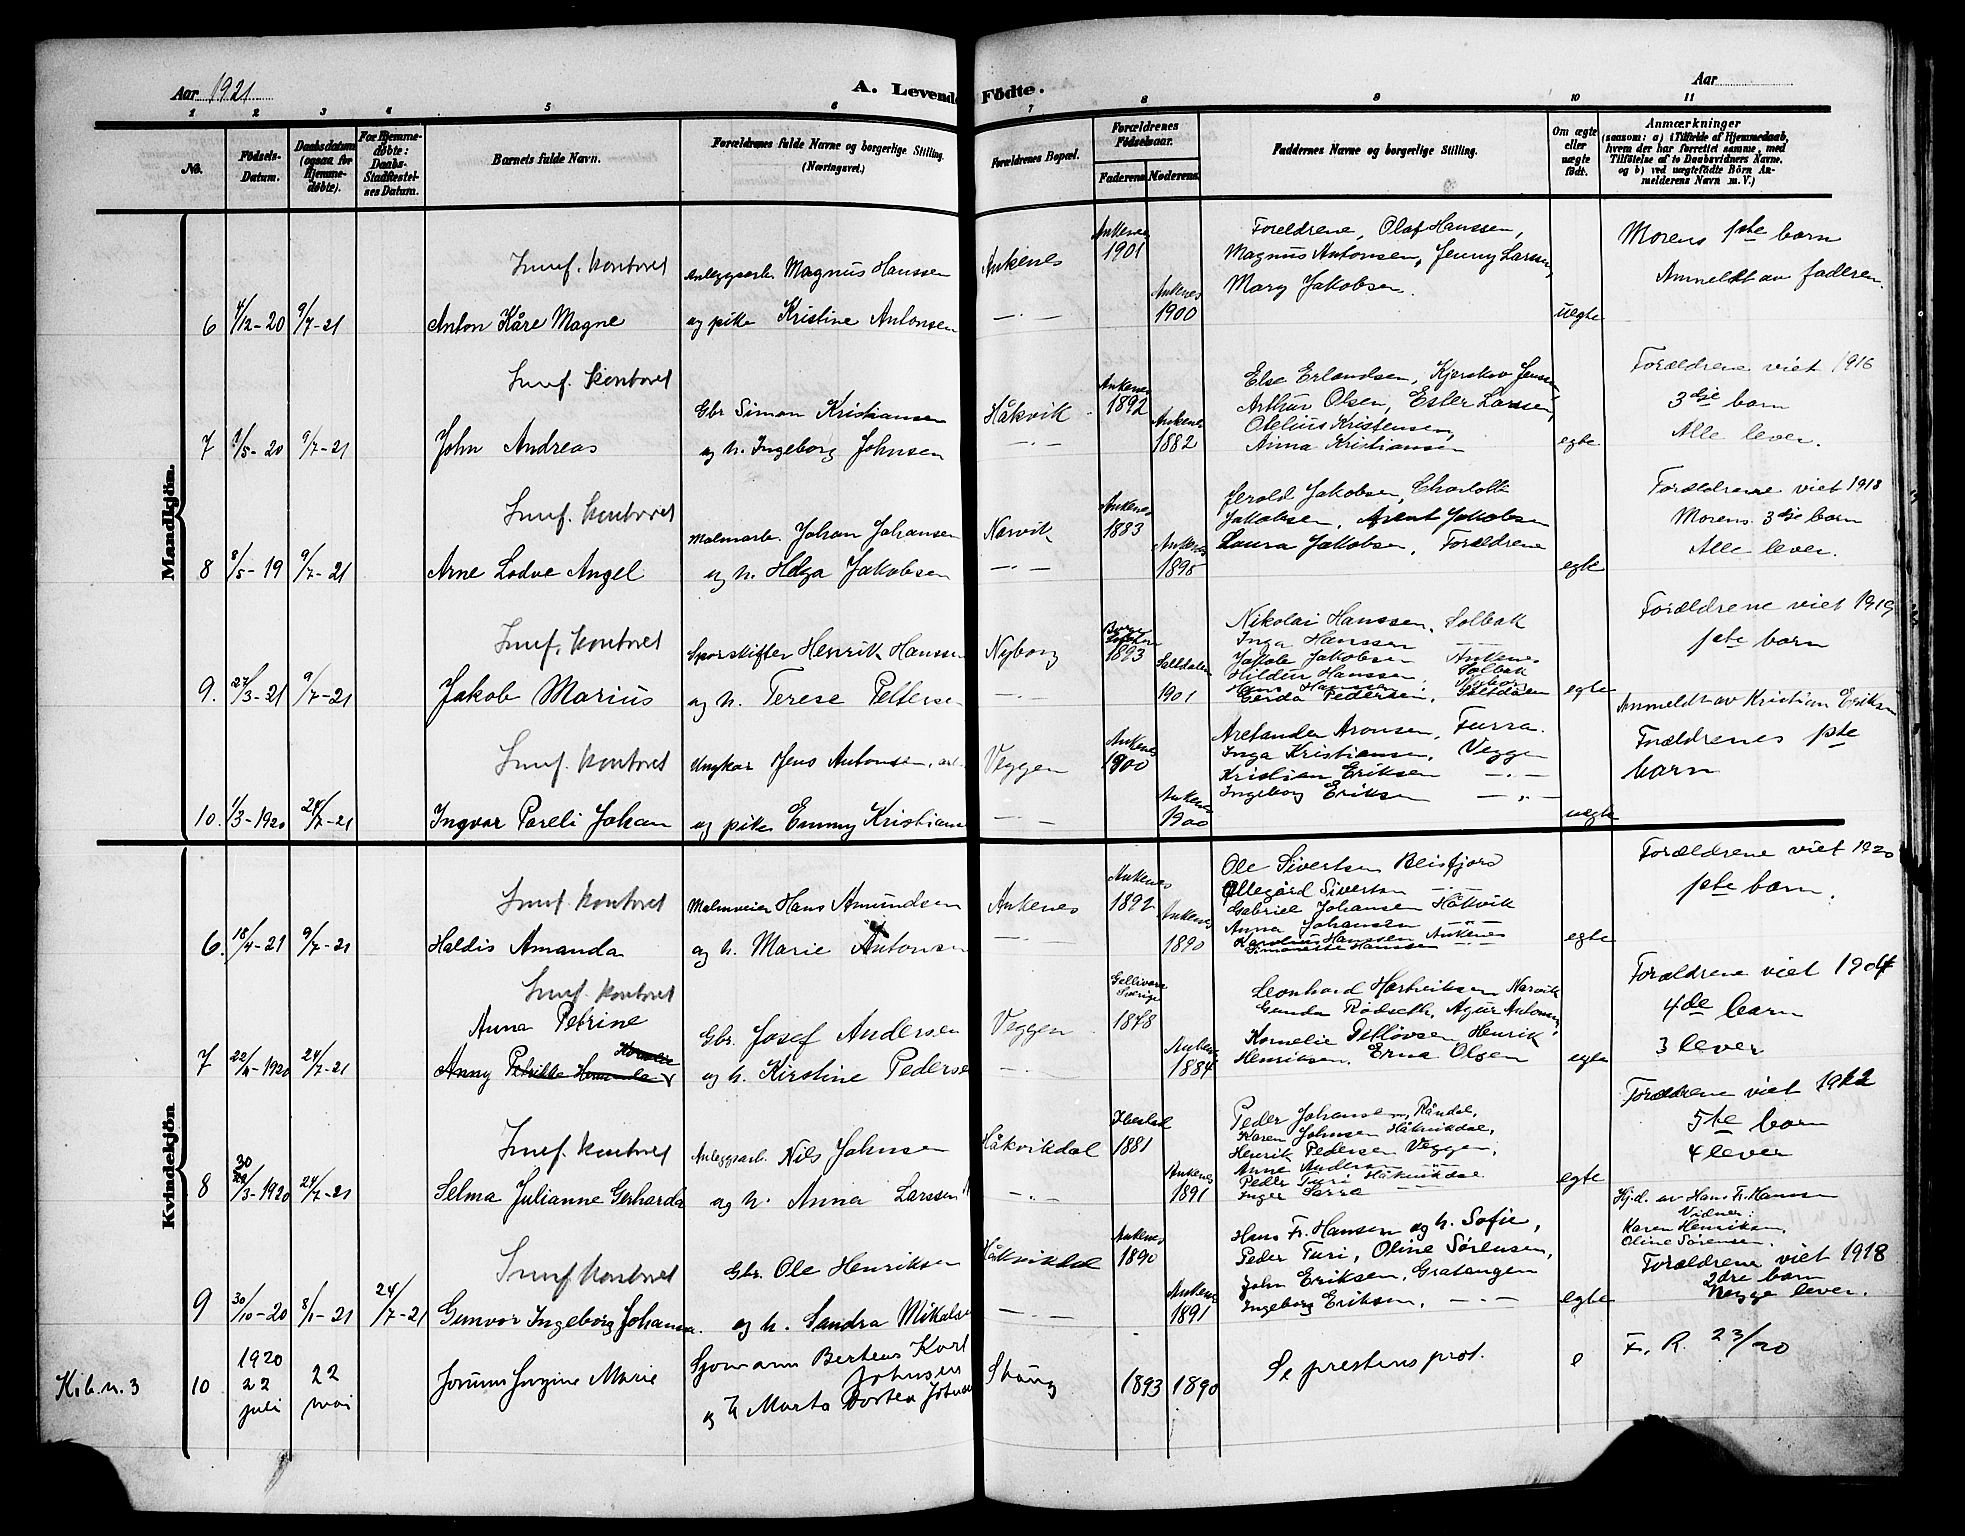 Aar 1921
A. Levende Födte.
Aar
1 2 3 4 5 6 7 8 9 10 11
No.
Födsels-Datum.
Daabsdatum (ogsaa for Hjemmedøbte).
For Hjemmedøbte: Daabs-Stadfæstelses Datum.
Barnets fulde Navn.
Forældrenes fulde Navne og borgerlige Stilling. (Næringsvei.)
Forældrenes Bopæl.
Forældrenes Födselsaar.
Faderens. Moderens.
Faddernes Navne og borgerlige Stilling.
Om ægte eller uægte födt.
Anmærkninger
(saasom: a) i Tilfælde af Hjemmedaab,
hvem der har forrettet samme, med
Tilföielse af to Daabsvidners Navne.
og b) ved uægtefödte Börn An-
melderens Navn m. V.)
Mandkjön.
kontoret
Anleggsarb. Magnus Hanssen
Ankenes
Ankenes 1901
Foreldrene, Olaf Hanssen,
Magnus Antonsen, Jenny Larsen,
Mary Jakobsen.
Morens 1ste barn
Anmeldt av faderen.
6 4/12-20 9/7-21 Anton Kåre Magne
og pike Kristine Antonsen
Ankenes 1900
uegte
kontoret
Gbr Simon Kristiansen
Håkvik
Ankenes 1892
Else Erlandsen,
Arthur Olsen, Ester Larsen,
Kristensen,
Anna Kristiansen
Forældrene viet 1916
3die barn
Alle lever.
7 9/7-21 John Andreas
og h. Ingeborg Johnsen
Ankenes 1882
egte
kontoret
Malmarb. Johan Johansen
Narvik
Ankenes 1883
Jerold Jakobsen, Charlotte
Jakobsen, Arent Jakobsen
Laura Jakobsen, Forældrene
Forældrene viet 1918
Morens 3die barn
Alle lever.
8 8/5-19 9/7-21 Arne Lodve Angel
og h. Helga Jakobsen
Ankenes
egte
kontoret
Sporskifter Henrik Hanssen
Nyborg
1893
Nikolai Hanssen, Solbak
Inga Hanssen
Jakob Jakobsen Ankenes
Hildur Hanssen, Solbak
Hans Hanssen Nyborg
Gerda Pedersen, Saltdalen
Forældrene viet 1919
1ste barn
9. 27/3-21 9/7-21 Jakob Marius
og h. Terese Petterse
Saltdalen 1901
egte
Anmeldt av Kristian Eriksen
kontoret
Ungkar Jens Antonsen,
Veggen
Ankenes 1900
Aronsen, Furra.
Inga Kristiansen, Veggen
Kristian Eriksen —„—
Ingeborg Eriksen —„—
Forældrenes 1ste
barn
10. 1/3-1920 24/7-21 Ingvar Pareli Johan
og pike Emmy Kristians
Ankenes 1900
uegte
Kvindekjön
kontoret
Malmveier Hans Amundsen
Ankenes
Ankenes 1892
Ole Sivertsen Beisfjord
Ellegård Sivertsen
Gabriel Johansen Håkvik
Anna Johansen
Karolius Hanssen Ankenes
Simonette Hanssen
Forældrene viet 1920
1ste barn.
6. 18/4-21 9/7-21 Haldis Amanda
og h. Marie Antonsen
Ankenes 1890
egte
kontoret
Anna Petrine
Gbr. Josef Andersen
Veggen
Gellivare Sverige 1878
Leonhard Hartviksen Narvik
Gunda Rødseth, Agur Antonsen,
Kornelie Detlovsen, Henrik
Henriksen, Erna Olsen
Forældrene viet 1904
4de barn
3 lever
7 22/4-1920 24/7-21 Anny Petrikke
og h. Kirstine Pederse
Ankenes 1884
egte
kontoret
Anleggsarb. Nils Johnsen
Håkvikdal
Ibestad 1881
Peder Johansen, Råndal,
Karen Johnsen Håkvikdal,
Henrik Pedersen Veggen,
Anne Andersen
Peder Turi Håkvikdal
Inger Sarra
Forældrene viet 1912
5te barn
4 lever
8 30/3-1920 24/7-21 Selma Julianne Gerharda
og h. Anna Larssen
Ankenes 1891
egte
kontoret
Gbr. Ole Henriksen
Håkvikdal
Ankenes 1890
Hans Fr. Hansen og h. Sofie,
Peder Turi, Oline Sørensen,
John Eriksen, Gratangen
Ingeborg Eriksen, —„—
Hj.d. av Hans Fr. Hansen
Vidner:
Karen Henriksen,
Oline Sørensen.
Forældrene viet 1918
2dre barn
begge lever.
9 30/10-20 8/1-21 24/7-21 Gunvor Ingeborg Johanna.
og h. Sandra Mikalse
Ankenes 1891
egte
Kib. n. 3
10 1920 22 juli 22 mai
Marie
Sjømann Bertens Karl
Johnsen
og h Marta Dortea Johnsen
1893 1890
Se prestens prot.
e
F. R. 23/20